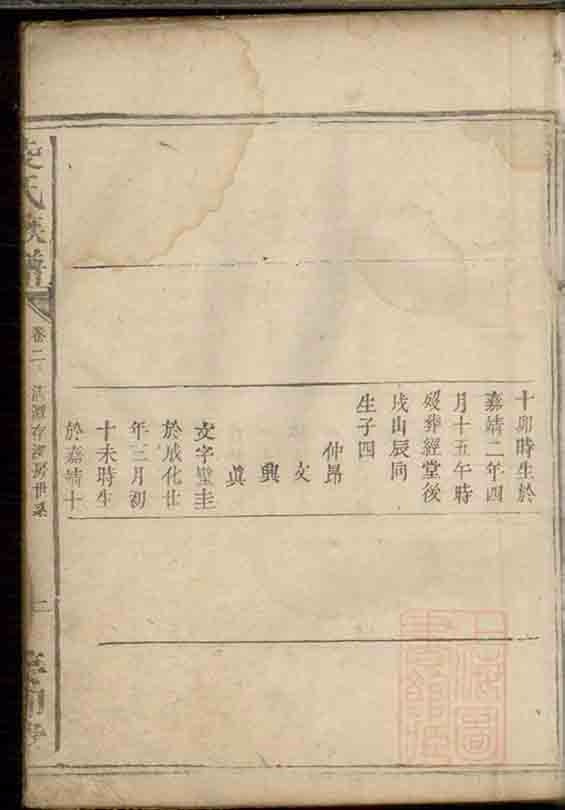 十卯時生於
嘉靖二年四
月十五午時
歿葬經堂後
戌山辰向
生子四
仲昂
文
興
真
文字璧圭
於成化廿
年三月初
十未時生
於嘉靖十
氏族譜
卷二
世系
二
上海圖書館藏